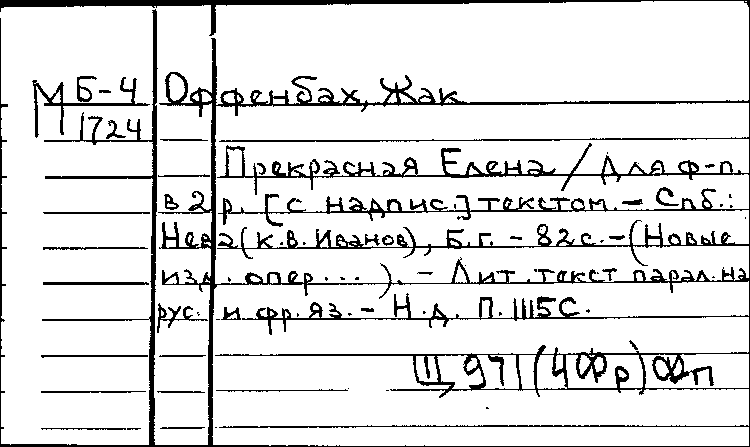 М Б-4 Оффенбах, Жак
1724
Прекрасная Елена / Для ф-п.
в 2 р. [с надпис.] текстом. - Спб.:
Нева (к.в. Иванов), Б.г. - 82с. - (Новые
изд. опер...). - Лит. текст парал. на
рус. и фр. яз. - Н.д. П. 1115 С.
Щ 971(4Фр)Фп